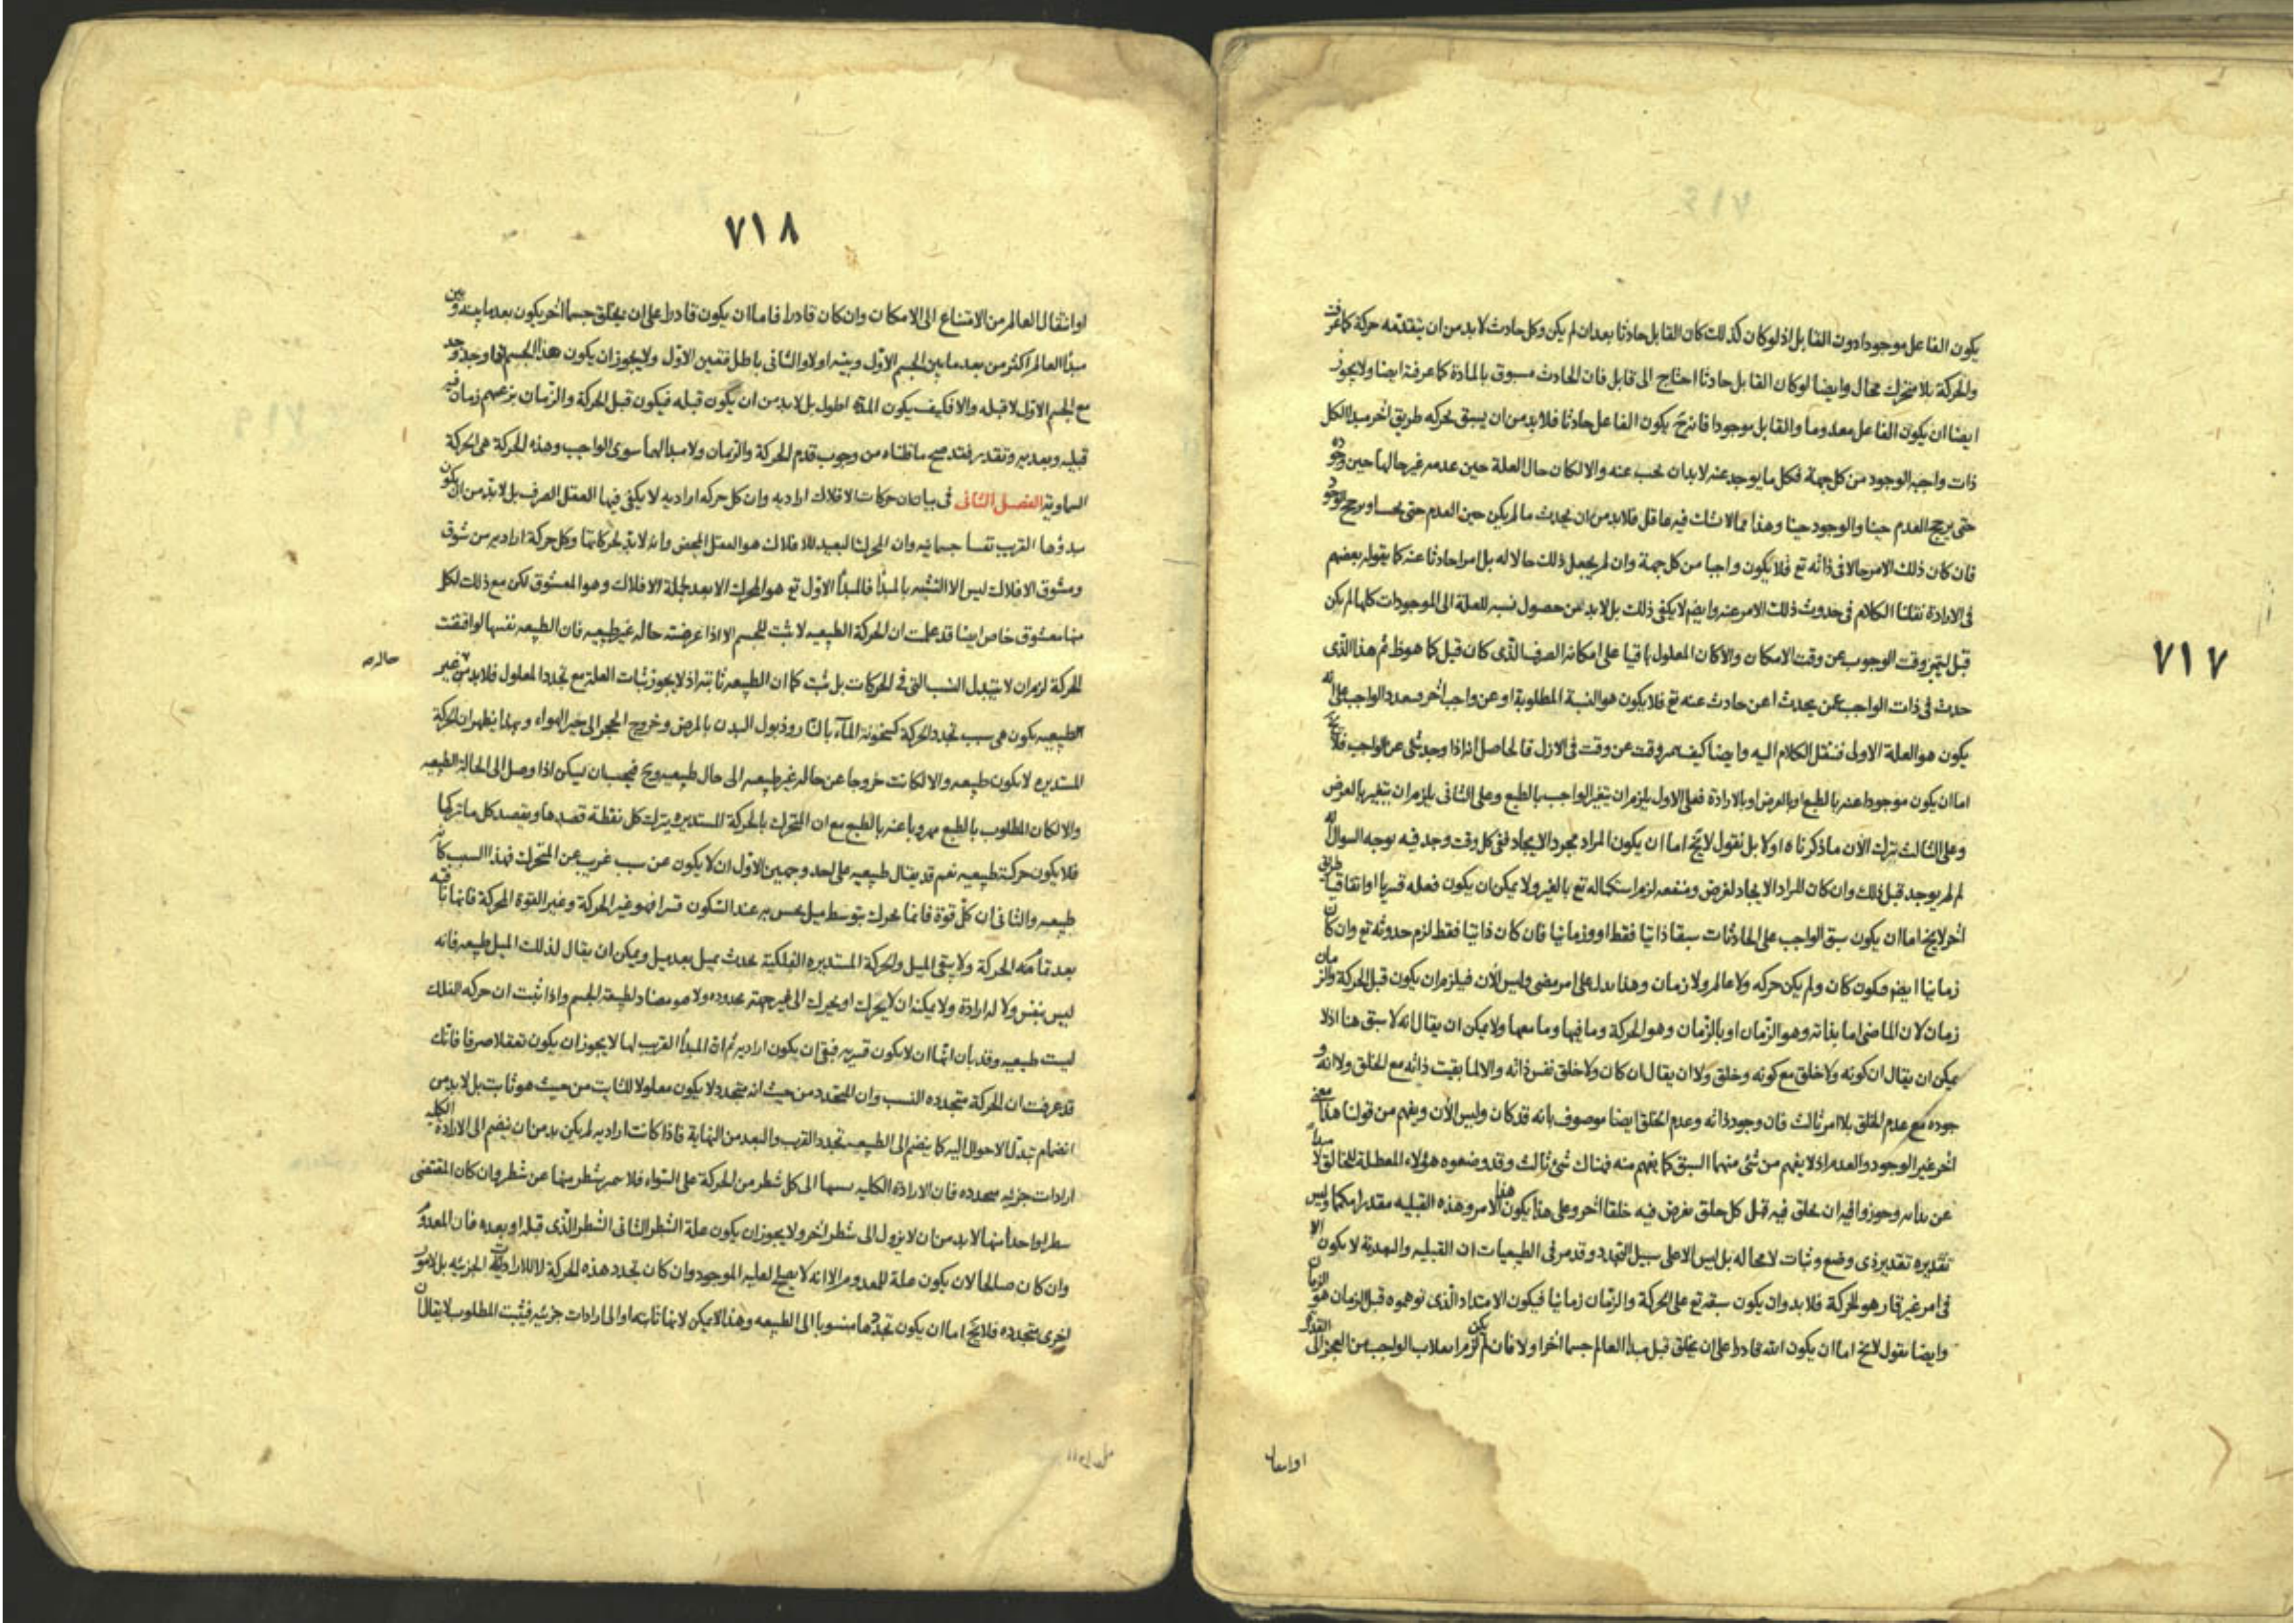 ٧١٧
يكون الفاعل موجودا دون القابل اذ لو كان كذلك كان القابل حادثا بعد ان لم يكن وكل حادث لا بد من ان يتقدمه حركة كما عرفت
والحركة بلا متحرك محال وايضا لو كان القابل حادثا احتاج الى قابل فان الحادث مسبوق بالمادة كما عرفته ايضا ولا يجوز
ايضا ان يكون الفاعل معدوما والقابل موجودا فانه ح يكون الفاعل حادثا فلا بد من ان يسبق بحركه طريق اخر مبدا الكل
ذات واجبة الوجود من كل جهة فكل ما يوجد عنه لا بد ان يجب عنه والا لكان حال العلة حين عدمه غير حالها حين وجوده
حتى يرجح العدم حينا والوجود حينا وهذا مما لا شك فيه عاقل فلا بد من ان يحدث ما لم يكن حين العدم حتى يرجح الوجود
فان كان ذلك الامر حالا فى ذاته تع فلا يكون واجبا من كل جهة وان لم يجعل ذلك حالا له بل امرا حادثا عنه كما يقوله بعضهم
فى الارادة نقلنا الكلام فى حدوث ذلك الامر عنه وايضم لا يكفى ذلك بل لا بد من حصول نسبه للعلة الى الموجودات كلها لم يكن
قبل ليتميز وقت الوجوب عن وقت الامكان والا كان المعلول باقيا على امكانه الصرف الذى كان قبل كما هو ظ ثم هذا الذى
حدث فى ذات الواجب عمن يحدث اعن حادث عنه تع فلا يكون هو النسبة المطلوبة او عن واجب اخر فيعدد الواجب على انه
يكون هو العلة الاولى فننقل الكلام اليه وايضا كيف يميز وقت عن وقت فى الازل فالحاصل انه اذا وجد شئ عن الواجب فلا يخ
اما ان يكون موجودا عنه بالطبع او بالعرض او بالارادة فعلى الاول يلزم ان يتغير الواجب بالطبع وعلى الثانى يلزم ان يتغير بالعرض
وعلى الثالث نترك الان ما ذكرناه اولا بل نقول لا يخ اما ان يكون المراد مجرد الايجاد ففى كل وقت وجد فيه يوجه السوال انه
لم لم يوجد قبل ذلك وان كان المراد الايجاد لغرض ومنفعه لزم استكماله تع بالغير ولا يمكن ان يكون فعله قسريا او اتفاقيا طريق
اخر لا يخ اما ان يكون سبق الواجب على الحادثات سبقا ذاتيا فقط او وزمانيا فان كان ذاتيا فقط لزم حدوثه تع وان كان
زمانيا ايضم فيكون كان ولم يكن حركه ولا عالم ولا زمان وهذا يدل على امر مضى وليس الان فيلزم ان يكون قبل الحركة والزمان
زمان لان الماضى اما بذاته وهو الزمان او بالزمان وهو الحركة وما فيها وما معها ولا يمكن ان يقال انه لا سبق هنا اذ لا
يمكن ان يقال ان كونه ولا خلق مع كونه وخلق ولا ان يقال ان كان ولا خلق نفس ذاته والا لما بقيت ذاته مع الخلق ولا انه و
جوده مع عدم الخلق بلا امر ثالث فان وجود ذاته وعدم الخلق ايضا موصوف بانه قد كان وليس الان ويفهم من قولنا هذا معنى
اخر غير الوجود والعدم اذ لا يفهم من شئ منهما السبق كما يفهم منه فهناك شئ ثالث وقد وضعوه هؤلاء المعطلة للخالق لا مبدا
عن بدايه وجوزوا فيه ان يخلق فيه قبل كل خلق يفرض فيه خلقا اخر وعلى هذا يكون هذا الامر وهذه القبليه مقدرا مكمما وليس
تقديره تقدير ذى وضع وثبات لا محاله بل ليس الا على سبيل التجدد وقد مر فى الطبيعيات ان القبليه والبعديه لا يكون الا
فى امر غير قار هو الحركة فلا بد وان يكون سبقه تع على الحركة والزمان زمانيا فيكون الامتداد الذى توهموه قبل الزمان هو الزمان
وايضا نقول لا يخ اما ان يكون الله قادرا على ان يخلق قبل مبدا العالم جسما اخر او لا فان لم يكن لزم انقلاب الواجب من العجز الى القدرة
او انتقال
٧١٨
او انتقال العالم من الامتناع الى الامكان وان كان قادرا فاما ان يكون قادرا على ان يخلق جسما اخر يكون بعد ما بينه وبين
مبدا العالم اكثر من بعد ما بين الجسم الاول وبينه اولا والثانى باطل فتعين الاول ولا يجوز ان يكون هذا الجسم انما وجد
مع الجسم الاول لا قبله والا فكيف يكون المدة اطول بل لا بد من ان يكون قبله فيكون قبل الحركة والزمان بزعمهم زمان فيه
قبليه وبعديه وتقدير فقد صح ما قلناه من وجوب قدم الحركة والزمان ولا مبدا لهما سوى الواجب وهذه الحركة هى الحركة
السماوية الفصل الثانى فى بيان ان حركات الافلاك اراديه وان كل حركه اراديه لا يكفى فيها العقل الصرف بل لا بد من ان يكون
مبدؤها القريب نفسا جسمانيه وان المحرك البعيد للافلاك هو العقل المحض وانه لا بد لحركاتها وكل حركة اراديه من شوق
ومشوق الافلاك ليس الا التشبه بالمبدأ فالمبدأ الاول تع هو المحرك الابعد لجملة الافلاك وهو المعشوق لكن مع ذلك لكل
منها معشوق خاص ايضا قد علمت ان الحركة الطبيعيه لا تثبت للجسم الا اذا عرضته حاله غير طبيعيه فان الطبيعه نفسها لو اقتضت
الحركة لزم ان لا يتبدل النسب التى فى الحركات بل تثبت كما ان الطبيعه ثابته اذ لا يجوز ثبات العلة مع تجدد المعلول فلا بد من غير
حاله صح
الطبيعيه يكون هى سبب تجدد الحركة كسخونة الماء بالنار وذبول البدن بالمرض وخروج الحجر الى حيز الهواء وبهذا يظهر ان الحركة
المستديره لا يكون طبيعيه والا لكانت خروجا عن حاله غير طبيعيه الى حال طبيعيه وح فيجب ان يسكن اذا وصل الى الحاله الطبيعيه
والا لكان المطلوب بالطبع مهروبا عنه بالطبع مع ان المتحرك بالحركة المستديره يترك كل نقطة قصدها ويقصد كل ما تركها
فلا يكون حركته طبيعيه نعم قد يقال طبيعيه على احد وجهين الاول ان لا يكون عن سبب غريب عن المتحرك فهذا السبب كانه
طبيعيه والثانى ان كل قوة فانما يحرك بتوسط ميل يحس به عند السكون قسرا فهو غير الحركة وغير القوة المحركة فانها باقيه
بعد تمامه الحركة ولا يبقى الميل والحركة المستديره الفلكية يحدث بميل بعد ميل ويمكن ان يقال لذلك الميل طبيعه فانه
ليس بنفس ولا له ارادة ولا يمكنه ان لا يحرك او يحرك الى غير جهة محدوده ولا هو مضاد لطبيعة الجسم واذا ثبت ان حركه الفلك
ليست طبيعيه وقد بان انها ان لا يكون قسريه فبقى ان يكون اراديه ثم ان المبدأ القريب لها لا يجوز ان يكون تعقلا صرفا فانك
قد عرفت ان الحركة متجدده النسب وان المتجدد من حيث انه متجدد لا يكون معلولا للثابت من حيث هو ثابت بل لا بد من
انضمام تبدل الاحوال اليه كما ينضم الى الطبيعيه تجدد القرب والبعد من النهاية فاذا كانت اراديه لم يكن بد من ان ينضم الى الارادة الكليه
ارادات جزئيه متجدده فان الارادة الكليه نسبتها الى كل شطر من الحركة على السواء فلا يميز شطر منها عن شطر وان كان المقتضى
شطرا واحدا منها لا بد من ان لا يزول الى شطر اخر ولا يجوز ان يكون علة الشطر الثانى الشطر الذى قبله او بعده فان المعدوم
وان كان صالحا لان يكون علة للمعدوم الا انه لا يصلح لعليه الموجود وان كان تجدد هذه الحركة لا للارادات الجزئيه بل لامور
اخرى متجدده فلا يخ اما ان يكون تجددها منسوبا الى الطبيعه وهذا لا يمكن لانها ثابته او الى ارادات جزئيه فيثبت المطلوب لا يقال ان